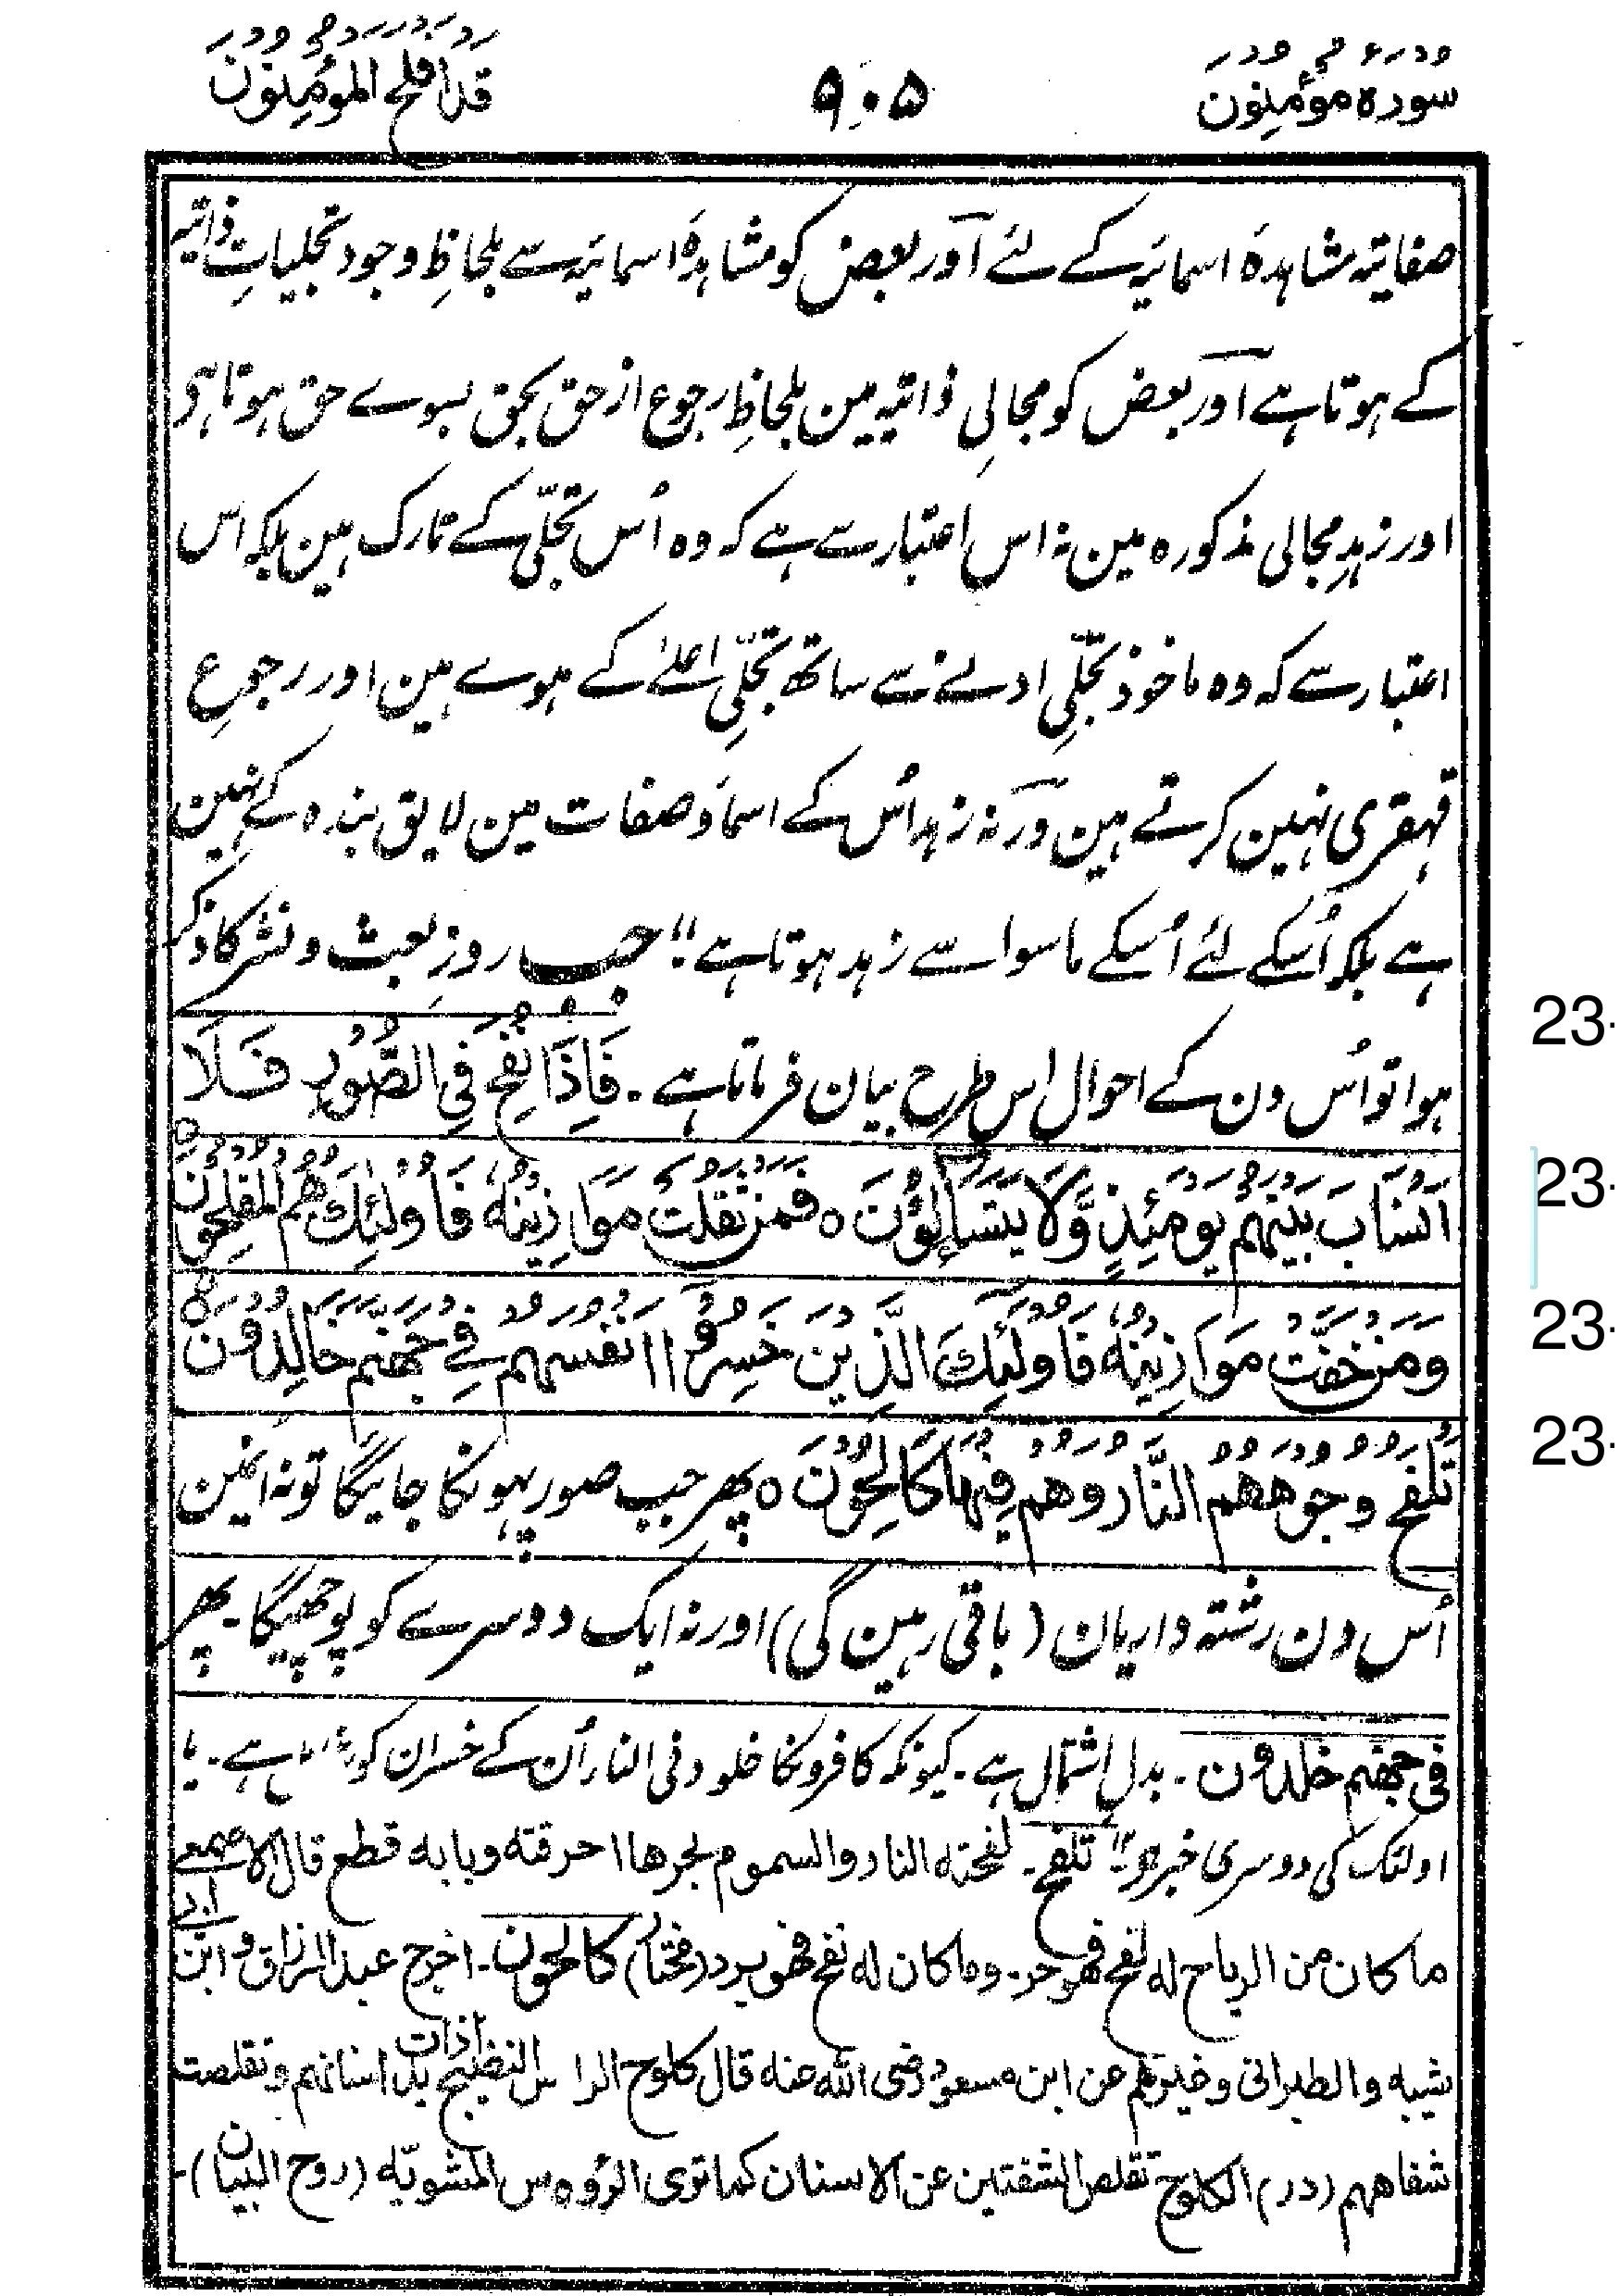 سوره مؤمنون ۹۰۵ قد افلح المؤمنون
صفاتیہ مشاہدہ اسمائیہ کے لئے اور بعض کو مشاہدہ اسمائیہ سے بلحاظِ وجود تجلیاتِ ذاتیہ
کے ہوتا ہے اور بعض کو مجالیِ ذاتیہ مین بلحاظِ رجوع از حق بحق بسوے حق ہوتا ہی
اور زہدِ مجالی مذکورہ مین نہ اس اعتبار سے ہے کہ وہ اُس تجلّی کے تارک ہین بلکہ اس
اعتبار سے کہ وہ ماخوذ تجلّیِ ادنے سے ساتھ تجلّیِ اعلےٰ کے ہوے ہین اور رجوعِ
قہقری نہین کرتے ہین ورنہ زہد اُس کے اسما و صفات مین لایق بندہ کے نہین
ہے بلکہ اُسکے لئے اُسکے ماسوا سے زہد ہوتا ہے" جب روزِ بعث و نشر کا ذکر
ہوا تو اُس دن کے احوال اس طرح بیان فرماتا ہے۔ فَاِذَا نُفِخَ فِي الصُّوْرِ فَلَا
اَنْسَابَ بَيْنَهُمْ يَوْمَئِذٍ وَّلَا يَتَسَآءَلُوْنَ ٥ فَمَنْ ثَقُلَتْ مَوَازِيْنُهٗ فَاُولٰئِكَ هُمُ الْمُفْلِحُوْنَ ٥
وَمَنْ خَفَّتْ مَوَازِيْنُهٗ فَاُولٰئِكَ الَّذِيْنَ خَسِرُوْٓا اَنْفُسَهُمْ فِيْ جَهَنَّمَ خَالِدُوْنَ ٥
تَلْفَحُ وُجُوْهَهُمُ النَّارُ وَهُمْ فِيْهَا كَالِحُوْنَ ٥ پھر جب صور پھونکا جائیگا تو نہ انمین
اُس دن رشتہ داریان (باقی رہین گی) اور نہ ایک دوسرے کو پوچھیگا۔ پھر
فی جهنم خلدون۔ بدلِ اشتمال ہے۔ کیونکہ کافرونکا خلود فی النار اُن کے خسران کو ہے۔ یا
اولئک کی دوسری خبر ہو" تلفح۔ لفحته النار والسموم بحرها احرقته وبابه قطع قال الاصمعے
ماکان من الریاح له لفح فهو حر۔ وماکان له نفح فهو برد (مختار) کالحون۔ اخرج عبد الرزاق وابن ابی
شیبه والطبرانی وغیرهم عن ابن مسعود رضی الله عنه قال کلوح الراس النضیج بدت اسنانهم وتقلصت
شفاههم (در) الکلوح تقلص الشفتین عن الاسنان کما تری الرؤوس المشویّه (روح البیان)۔
23
23
23
23